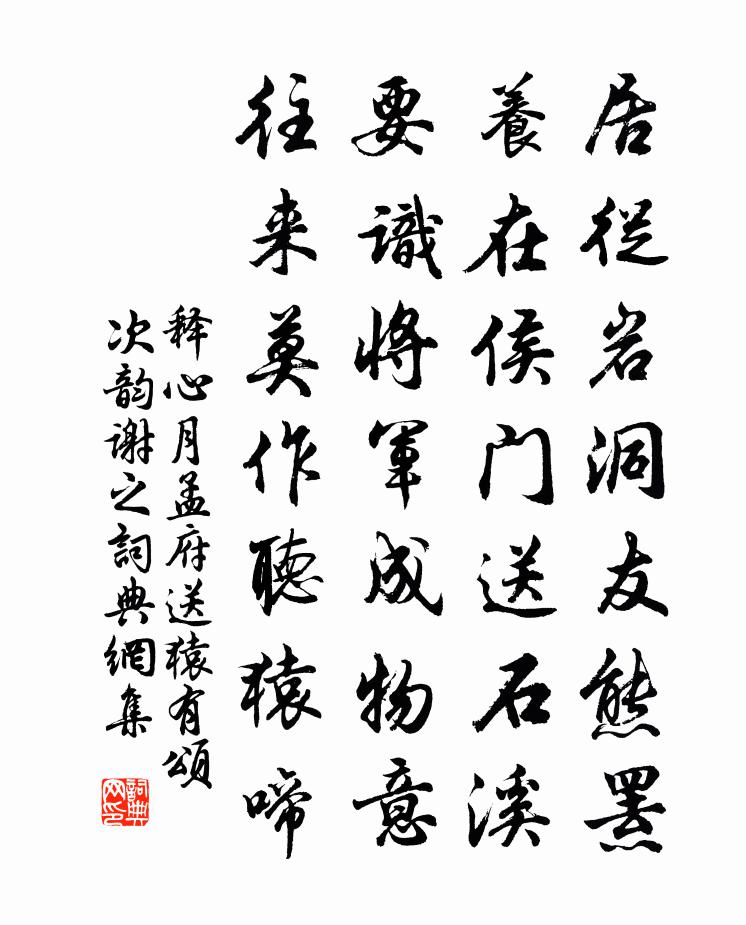 居從岩洞友熊罴
養在侯门送石溪
要識將軍成物意
往来莫作聽猿啼
释心月孟府送猿有頌
次韵谢之詞典網集
詞典网印